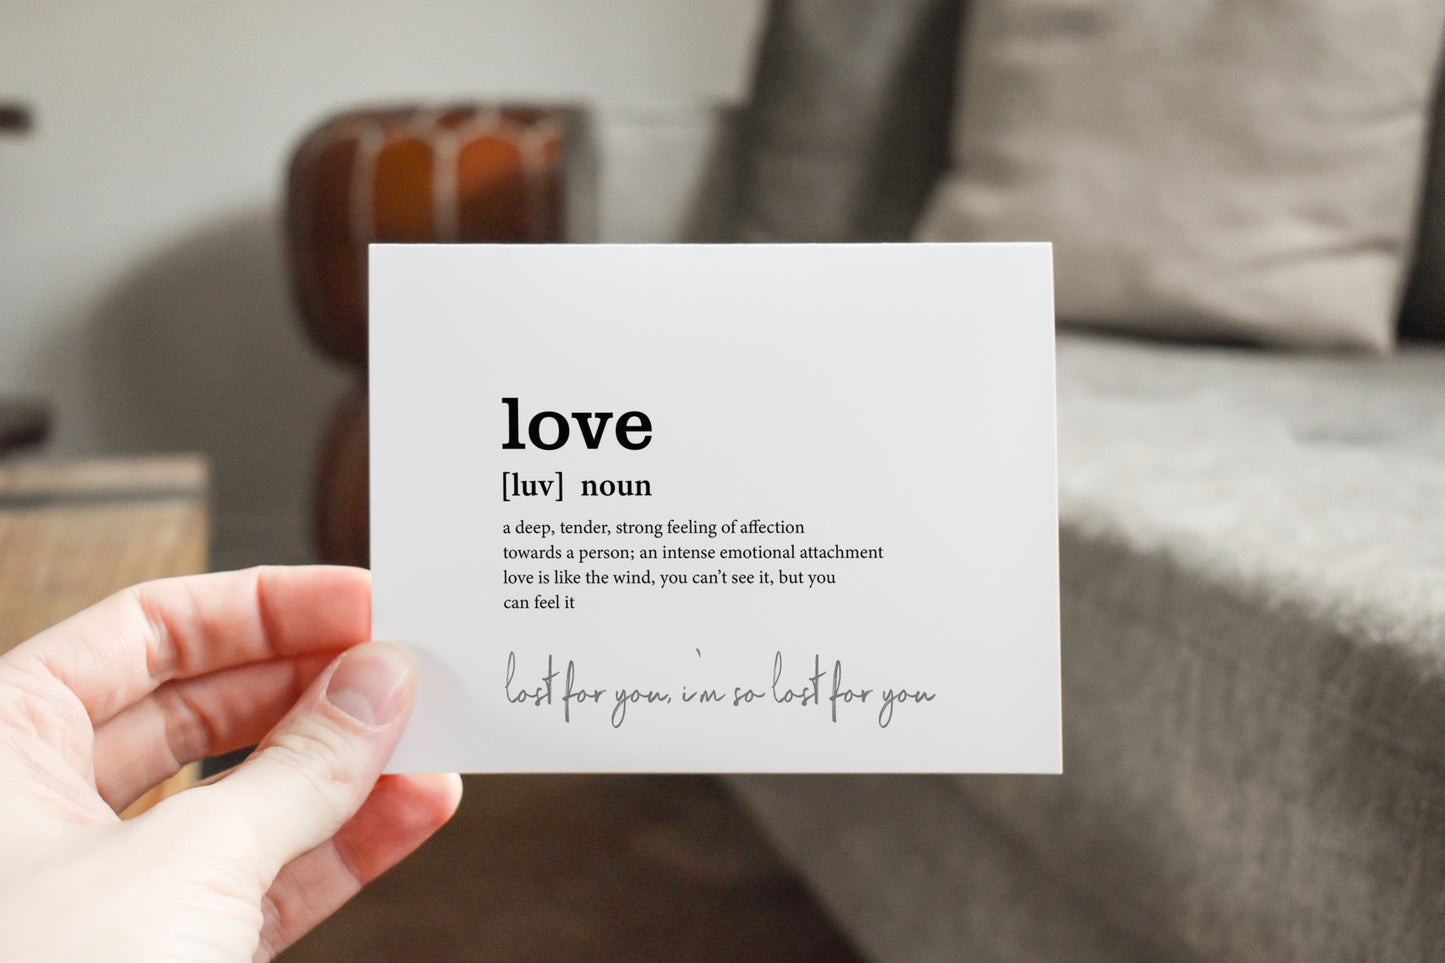 love
[luv] noun
a deep, tender, strong feeling of affection
towards a person; an intense emotional attachment
love is like the wind, you can’t see it, but you
can feel it
lost for you, i'm so lost for you